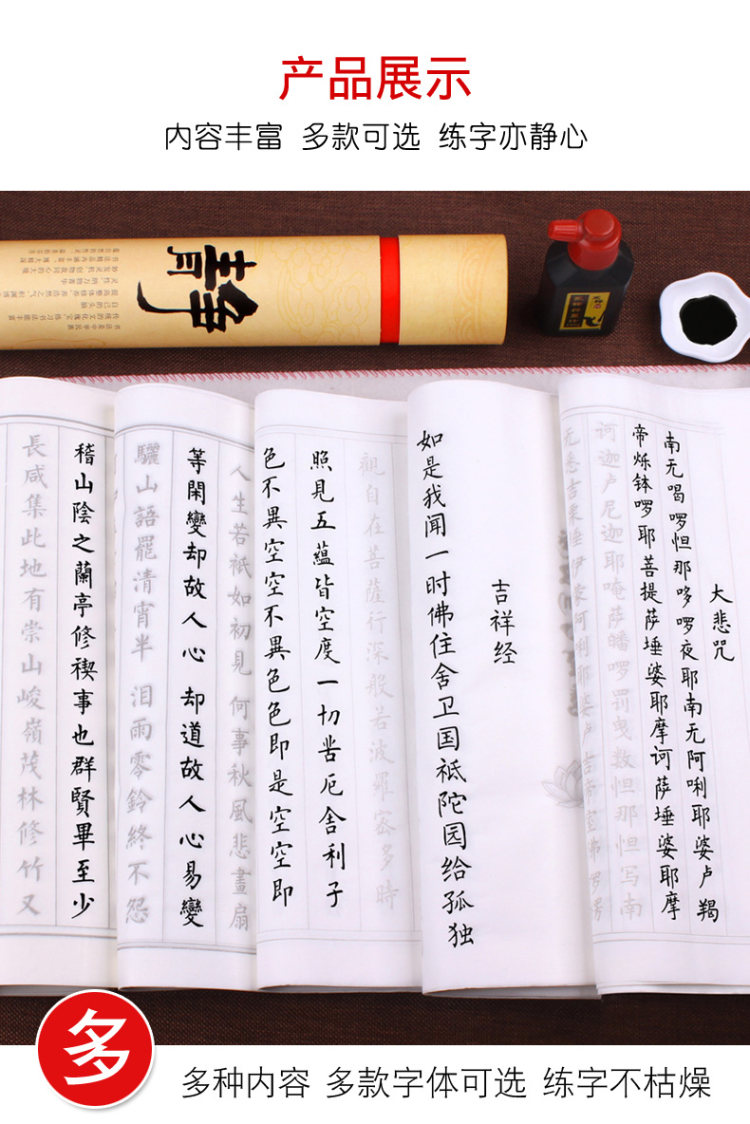 产品展示
内容丰富 多款可选 练字亦静心
靜
大悲咒
南无喝啰怛那哆啰夜耶南无阿唎耶婆卢羯
帝烁钵啰耶菩提萨埵婆耶摩诃萨埵婆耶摩
诃迦卢尼迦耶唵萨皤啰罚曳数怛那怛写南
吉祥经
如是我闻一时佛住舍卫国祗陀园给孤独
觀自在菩薩行深般若波羅蜜多時
照見五蘊皆空度一切苦厄舍利子
色不異空空不異色色即是空空即
人生若祇如初見 何事秋風悲畫扇
等閑變却故人心 却道故人心易變
驪山語罷清宵半 泪雨零鈴終不怨
稽山陰之蘭亭修禊事也群賢畢至少
長咸集此地有崇山峻嶺茂林修竹又
多
多种内容 多款字体可选 练字不枯燥